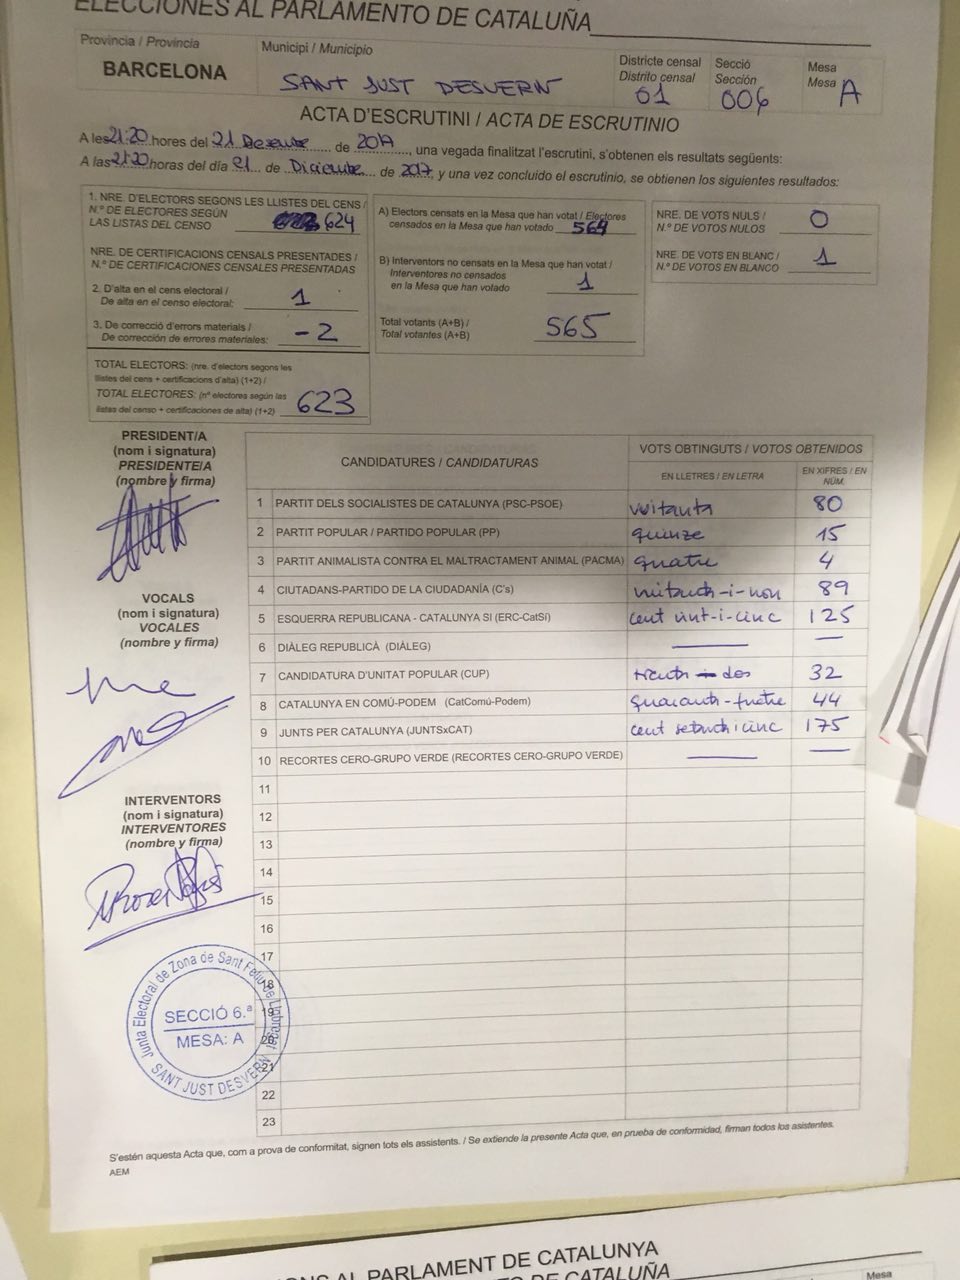 ELECCIONES AL PARLAMENTO DE CATALUÑA
Provincia / Provincia
BARCELONA
Municipi / Municipio
SANT JUST DESVERN
Districte censal
Distrito censal
01
Secció
Sección
006
Mesa
Mesa
A
ACTA D'ESCRUTINI / ACTA DE ESCRUTINIO
A les 21:20 hores del 21 Desembre de 2017, una vegada finalitzat l'escrutini, s'obtenen els resultats següents:
A las 21:20 horas del día 21 de Diciembre de 2017 y una vez concluido el escrutinio, se obtienen los siguientes resultados:
1. NRE. D'ELECTORS SEGONS LES LLISTES DEL CENS /
N.º DE ELECTORES SEGÚN
LAS LISTAS DEL CENSO
624
NRE. DE CERTIFICACIONS CENSALS PRESENTADES /
N.º DE CERTIFICACIONES CENSALES PRESENTADAS
2. D'alta en el cens electoral /
De alta en el censo electoral:
1
3. De correcció d'errors materials /
De corrección de errores materiales:
-2
TOTAL ELECTORS: (nre. d'electors segons les
llistes del cens + certificacions d'alta) (1+2) /
TOTAL ELECTORES: (nº electores según las
listas del censo + certificaciones de alta) (1+2)
623
A) Electors censats en la Mesa que han votat / Electores
censados en la Mesa que han votado
564
B) Interventors no censats en la Mesa que han votat /
Interventores no censados
en la Mesa que han votado
1
Total votants (A+B) /
Total votantes (A+B)
565
NRE. DE VOTS NULS /
N.º DE VOTOS NULOS
0
NRE. DE VOTS EN BLANC /
N.º DE VOTOS EN BLANCO
1
PRESIDENT/A
(nom i signatura)
PRESIDENTE/A
(nombre y firma)
VOCALS
(nom i signatura)
VOCALES
(nombre y firma)
INTERVENTORS
(nom i signatura)
INTERVENTORES
(nombre y firma)
CANDIDATURES / CANDIDATURAS
VOTS OBTINGUTS / VOTOS OBTENIDOS
EN LLETRES / EN LETRA
EN XIFRES / EN NÚM.
1 PARTIT DELS SOCIALISTES DE CATALUNYA (PSC-PSOE) vuitanta 80
2 PARTIT POPULAR / PARTIDO POPULAR (PP) quinze 15
3 PARTIT ANIMALISTA CONTRA EL MALTRACTAMENT ANIMAL (PACMA) quatre 4
4 CIUTADANS-PARTIDO DE LA CIUDADANÍA (C's) vuitanta-i-nou 89
5 ESQUERRA REPUBLICANA - CATALUNYA SI (ERC-CatSí) cent vint-i-cinc 125
6 DIÀLEG REPUBLICÀ (DIÀLEG) — —
7 CANDIDATURA D'UNITAT POPULAR (CUP) trenta-dos 32
8 CATALUNYA EN COMÚ-PODEM (CatComú-Podem) quaranta-quatre 44
9 JUNTS PER CATALUNYA (JUNTSxCAT) cent setanta i cinc 175
10 RECORTES CERO-GRUPO VERDE (RECORTES CERO-GRUPO VERDE) — —
11
12
13
14
15
16
17
18
19
20
21
22
23
Junta Electoral de Zona de Sant Feliu de Llobregat
SECCIÓ 6.ª
MESA: A
SANT JUST DESVERN
S'estén aquesta Acta que, com a prova de conformitat, signen tots els assistents. / Se extiende la presente Acta que, en prueba de conformidad, firman todos los asistentes.
AEM
AL PARLAMENT DE CATALUNYA
DE CATALUÑA
Mesa